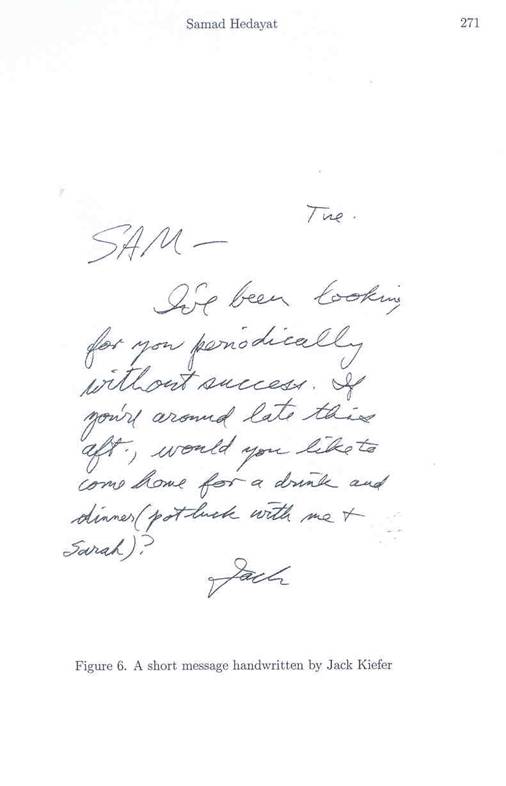 Samad Hedayat 271
Tue.
SAM —
I've been looking
for you periodically
without success. If
you're around late this
aft., would you like to
come home for a drink and
dinner (pot luck with me +
Sarah)?
Jack
Figure 6. A short message handwritten by Jack Kiefer